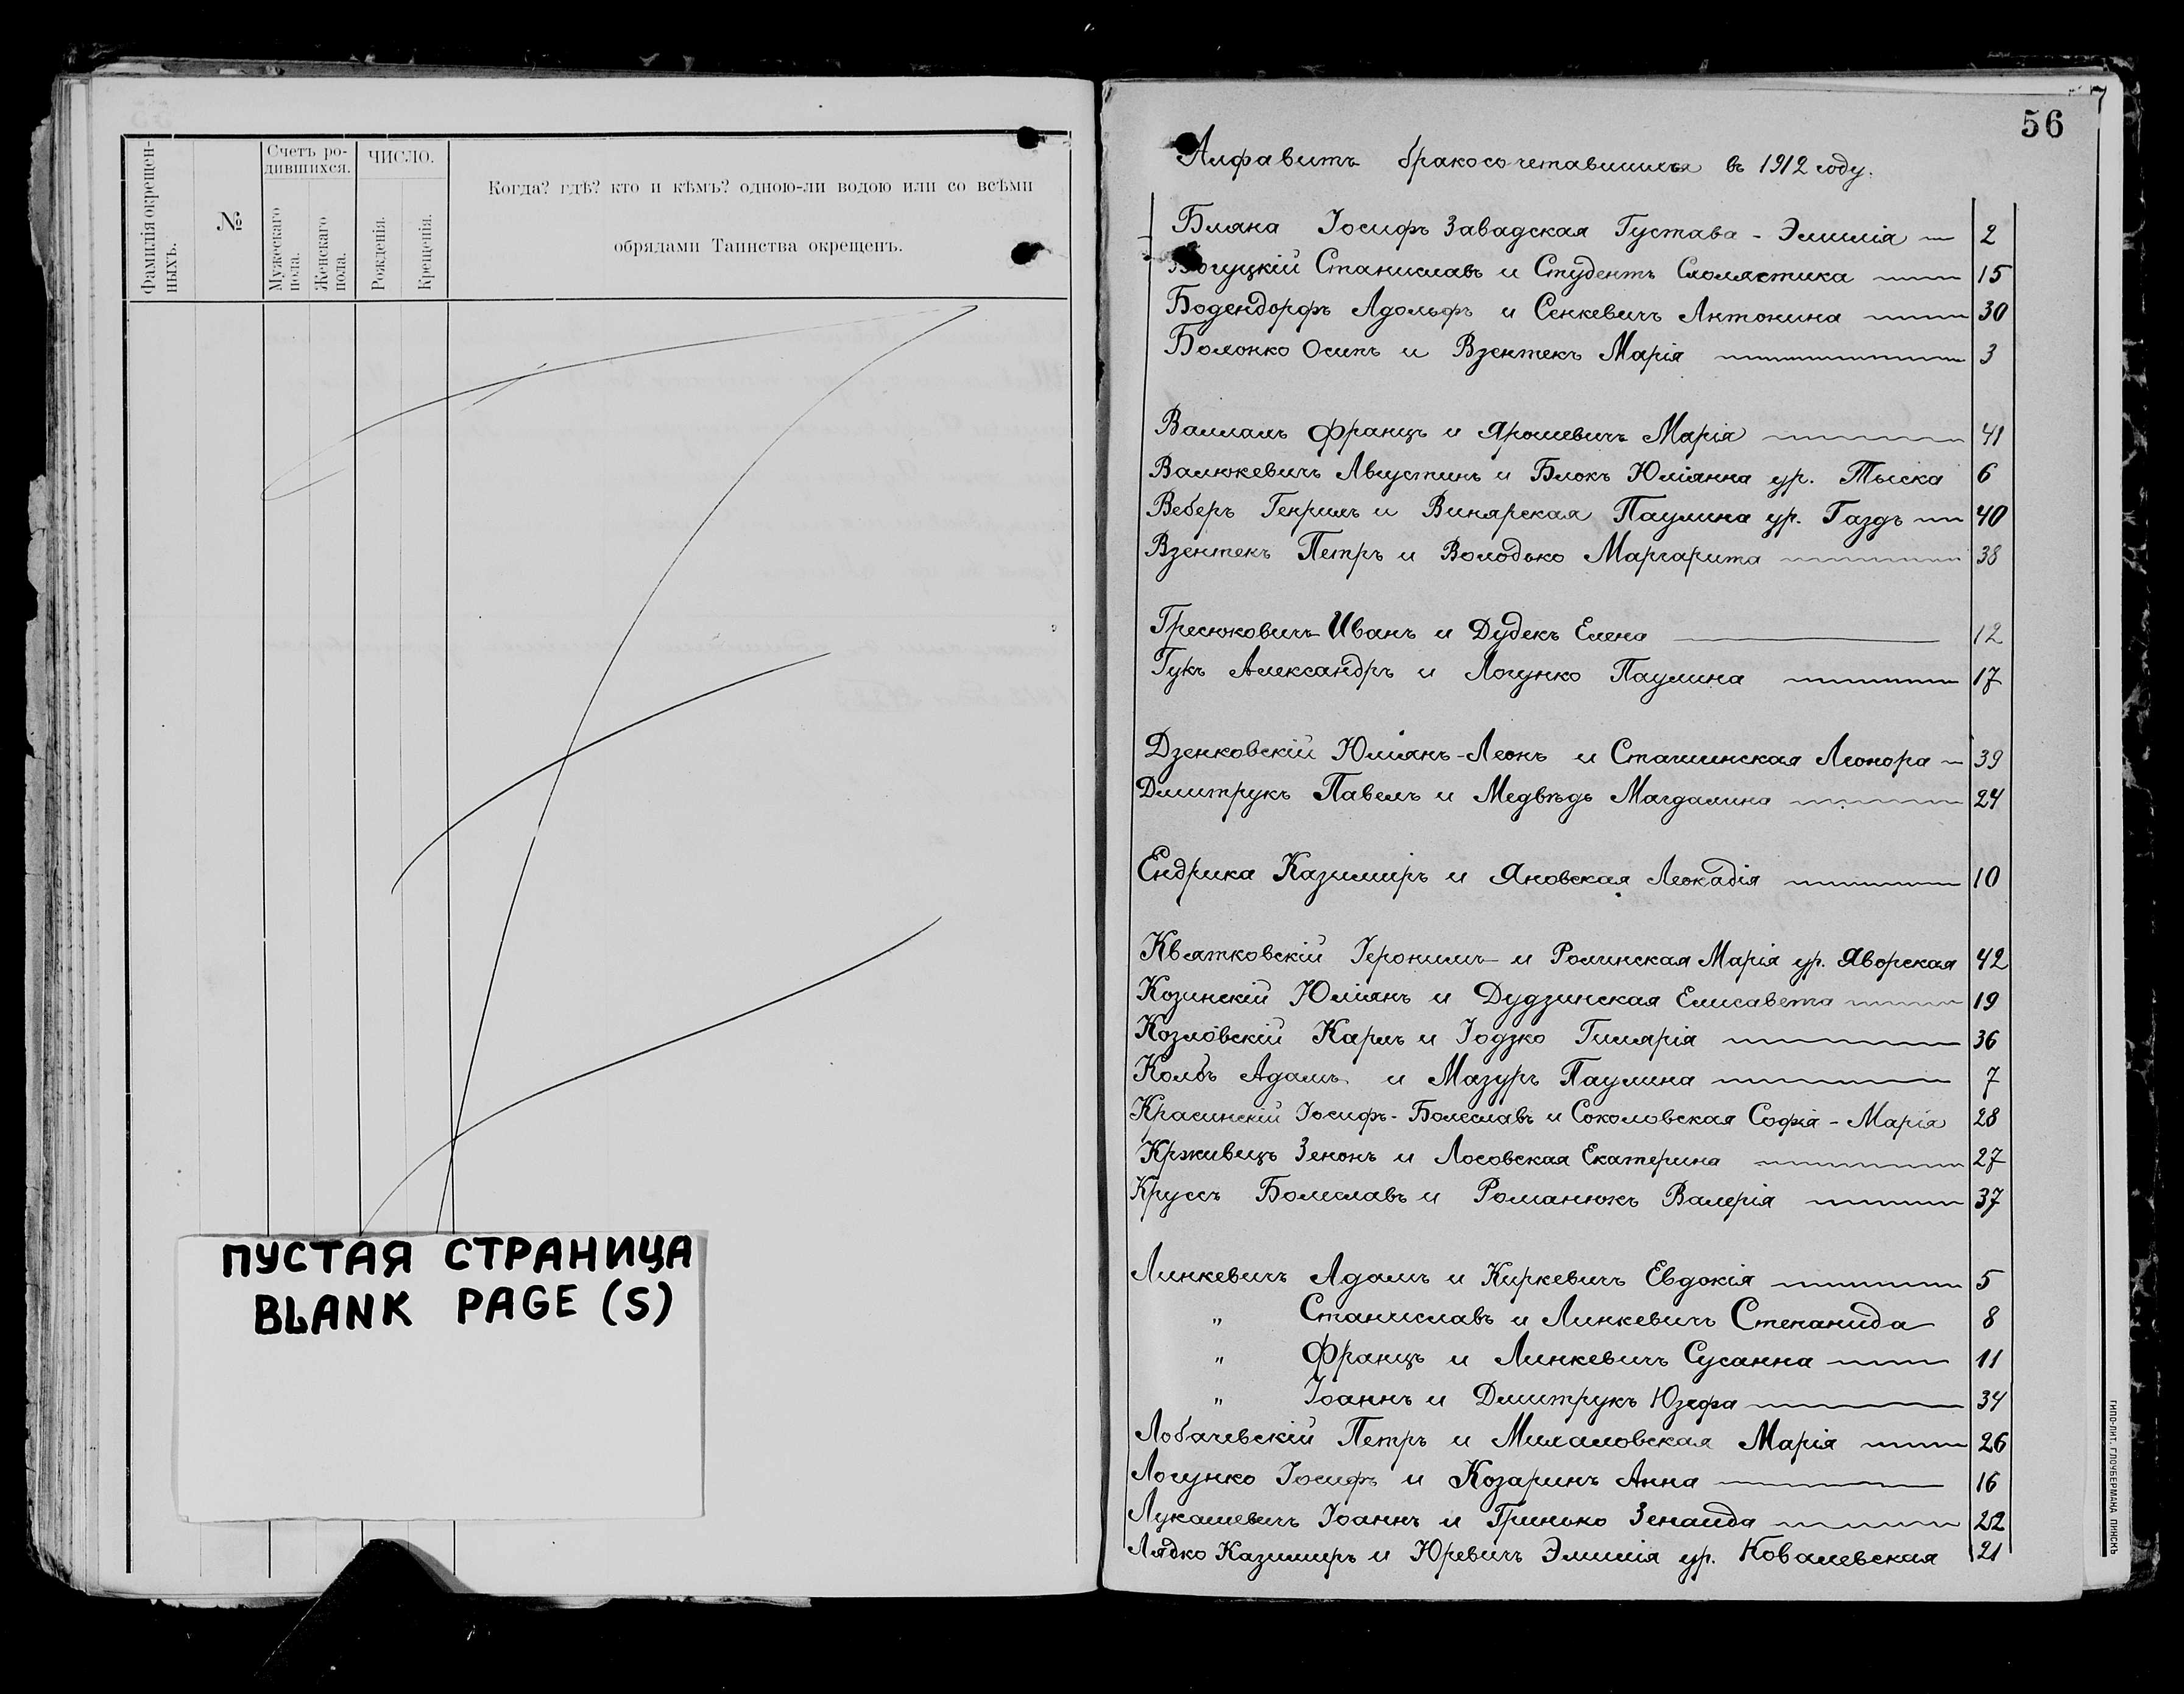 Фамилія окрещен-
ныхъ.
№
Счетъ ро-
дившихся.
Мужескаго
пола.
Женскаго
пола.
ЧИСЛО.
Рожденія.
Крещенія.
Когда? гдѣ? кто и кѣмъ? одною-ли водою или со всѣми
обрядами Таинства окрещенъ.
ПУСТАЯ СТРАНИЦА
BLANK PAGE (S)
56
Алфавитъ бракосочетавшихся въ 1912 году.
Бляха Іосифъ Завадская Густава - Эмилія 2
Богуцкій Станиславъ и Студентъ Схолястика 15
Бодендорфъ Адольфъ и Сенкевичъ Антонина 30
Болонко Осипъ и Взентекъ Марія 3
Валлахъ Францъ и Ярошевичъ Марія 41
Валюкевичъ Августинъ и Блокъ Юліянна ур. Тыска 6
Веберъ Генрихъ и Винярская Паулина ур. Газдъ 40
Взентекъ Петръ и Володько Маргарита 38
Гресюковичъ Иванъ и Дудекъ Елена 12
Гукъ Александръ и Логунко Паулина 17
Дзенковскій Юліянъ-Леонъ и Сташинская Леонора 39
Дмитрукъ Павелъ и Медвѣдь Магдалина 24
Ендрика Казимиръ и Яновская Леокадія 10
Квятковскій Іеронимъ и Ролинская Марія ур. Яворская 42
Козинскій Юліянъ и Дудзинская Елисавета 19
Козловскій Карлъ и Іодзко Гилярія 36
Колбъ Адамъ и Мазуръ Паулина 7
Красинскій Іосифъ-Болеславъ и Соколовская Софія - Марія 28
Крживецъ Зенонъ и Лосовская Екатерина 27
Круссъ Болеславъ и Романюкъ Валерія 37
Линкевичъ Адамъ и Киркевичъ Евдокія 5
" Станиславъ и Линкевичъ Степанида 8
" Францъ и Линкевичъ Сусанна 11
" Іоаннъ и Дмитрукъ Юзефа 34
Лобачевскій Петръ и Михаловская Марія 26
Логунко Іосифъ и Козаринъ Анна 16
Лукашевичъ Іоаннъ и Гринько Зенаида 22
Лядко Казимиръ и Юревичъ Эмилія ур. Ковалевская 21
ТИПО-ЛИТ. ГЛОУБЕРМАНА, ПИНСКЪ